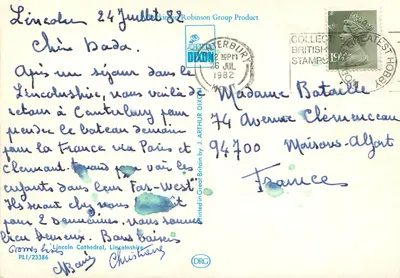 Lincoln 24 Juillet 82
Robinson Group Product
Chère Dada.
Après un séjour dans le
Lincolnshire, nous voilà de
retour à Canterbury pour
prendre le bateau demain
pour la France via Paris et
Clermont-Ferrand pour voir les
enfants dans leur "Far-West"
Ils seront chez nous
pour 2 semaines. nous sommes
bien heureux. Bons baisers
Christiane
Lincoln Cathedral, Lincolnshire
PLI/23386
DIXON
Printed in Great Britain by J. ARTHUR DIXON
DRG
CANTERBURY
PM
26 JUL
1982
COLLECT
BRITISH
STAMPS
GREATEST HOBBY
Madame Bataille
74 Avenue Clémenceau
94700 Maisons-Alfort
France